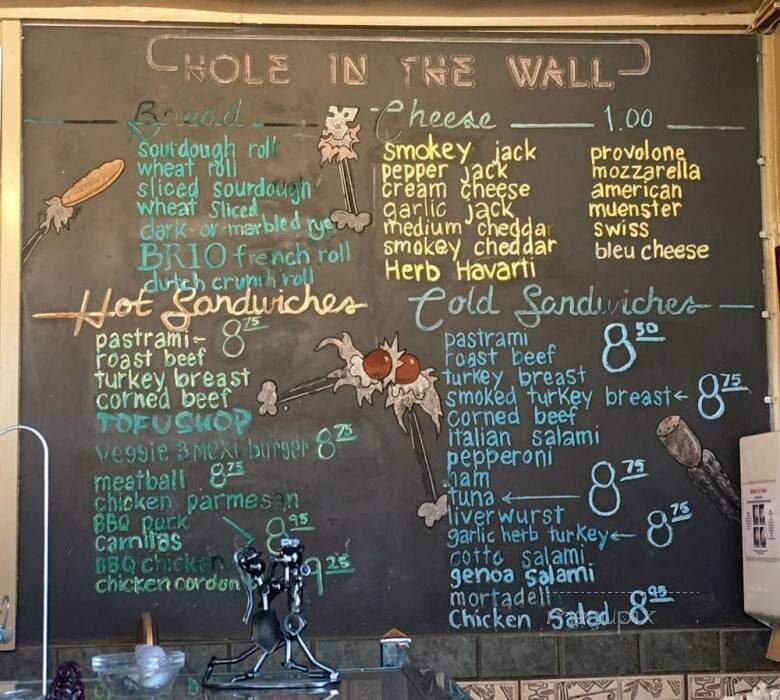 HOLE IN THE WALL
Bread
sourdough roll
wheat roll
sliced sourdough
wheat Sliced
dark or marbled rye
BRIO french roll
dutch crunch roll
Cheese 1.00
smokey jack
pepper jack
cream cheese
garlic jack
medium cheddar
smokey cheddar
Herb Havarti
provolone
mozzarella
american
muenster
swiss
bleu cheese
Hot Sandwiches
pastrami 8 75
roast beef
turkey breast
corned beef
TOFU SHOP
veggie & mexi-burger 8 75
meatball 8 75
chicken parmesan
BBQ pork 8 95
Carnitas
BBQ chicken 9 25
chicken cordon
Cold Sandwiches
pastrami 8 50
roast beef
turkey breast
smoked turkey breast 8 75
corned beef
italian salami
pepperoni
ham
tuna 8 75
liverwurst
garlic herb turkey 8 75
cotto salami
genoa salami
mortadell
Chicken Salad 8 95
menupix